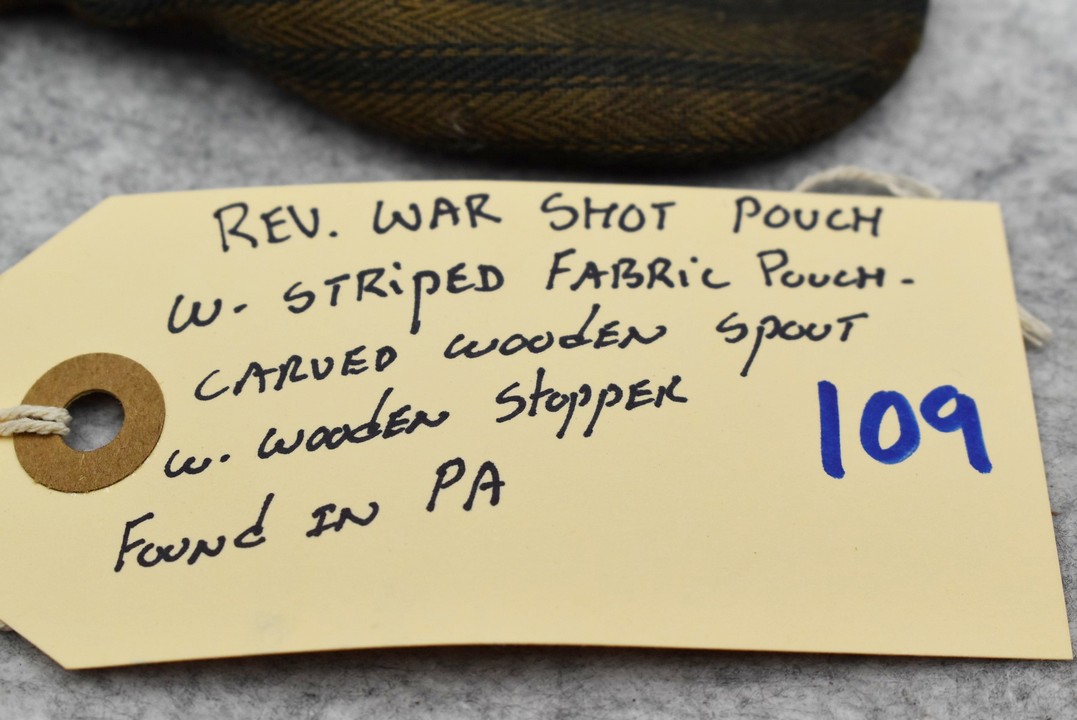 REV. WAR SHOT POUCH
W- STRIPED FABRIC POUCH-
CARVED WOODEN SPOUT
W. WOODEN STOPPER
FOUND IN PA
109